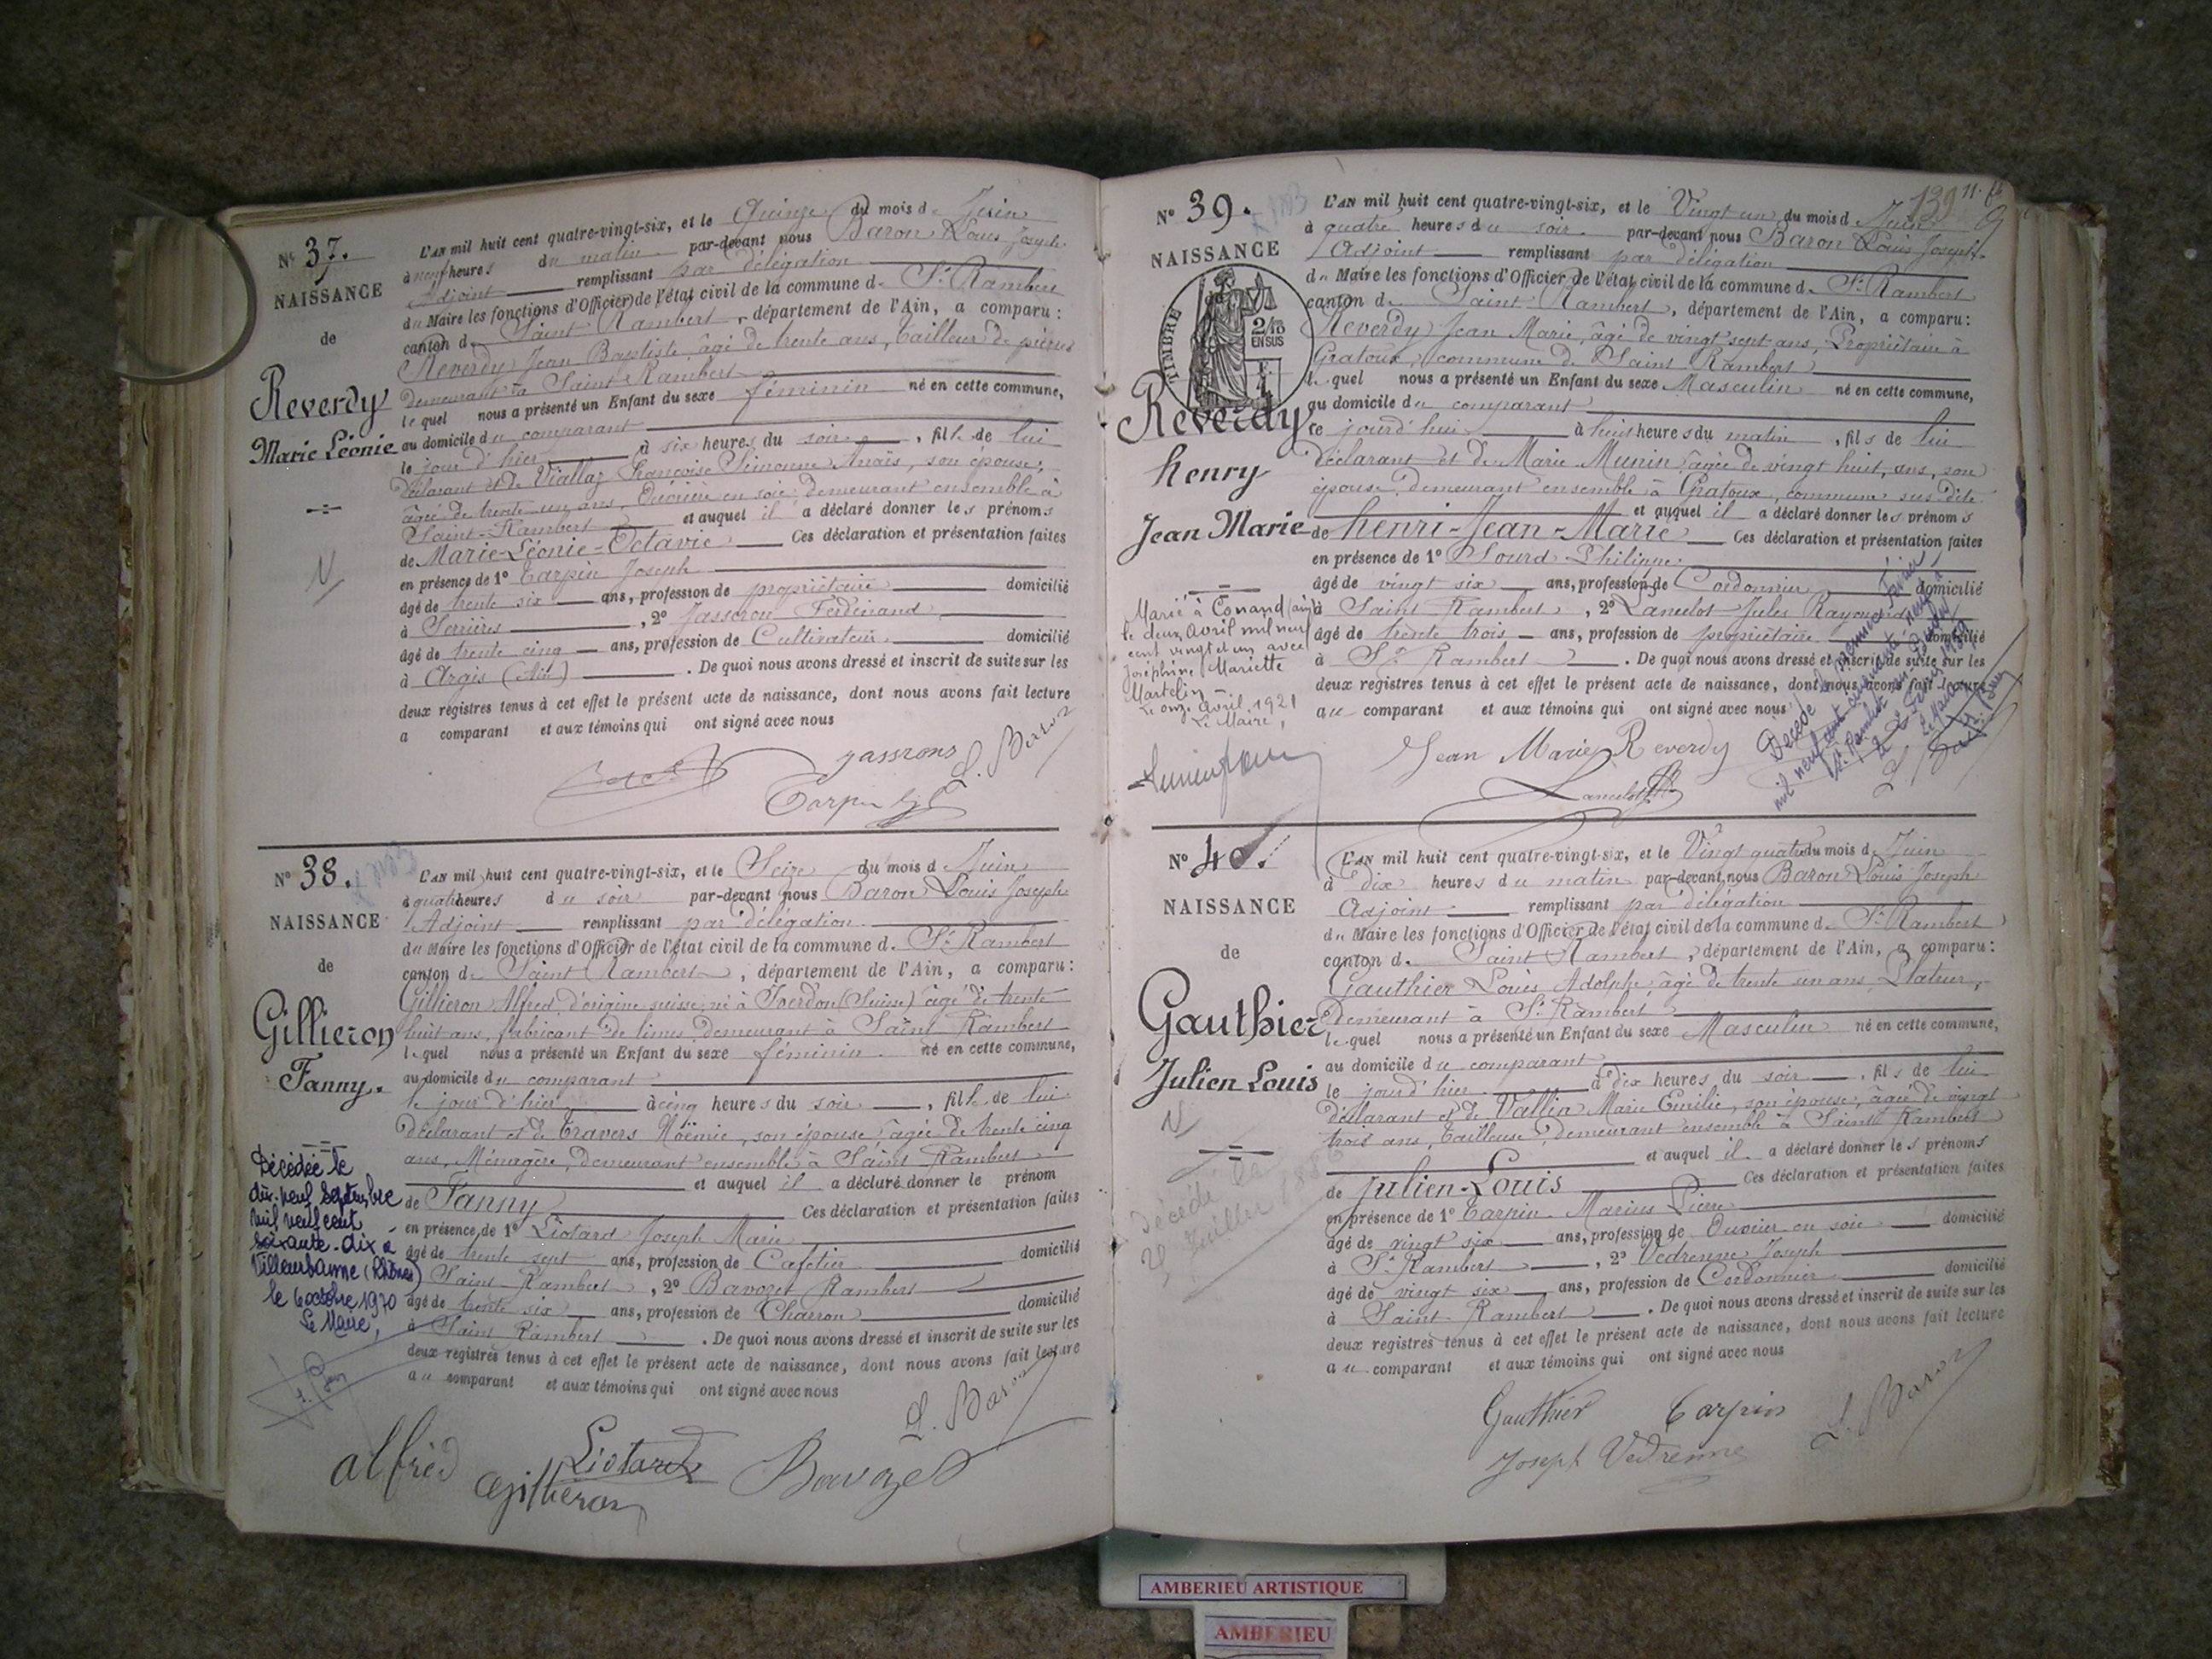 N° 37.
NAISSANCE
de
Reverdy
Marie Léonie
L'AN mil huit cent quatre-vingt-six, et le Quinze du mois de Juin
à neuf heures du matin par-devant nous Baron Louis Joseph
Adjoint remplissant par délégation
du Maire les fonctions d'Officier de l'état civil de la commune de St Rambert
canton de Saint Rambert, département de l'Ain, a comparu:
Reverdy Jean Baptiste âgé de trente ans, Tailleur de pierres
demeurant à Saint Rambert
lequel nous a présenté un Enfant du sexe féminin né en cette commune,
au domicile du comparant
le jour d'hier à six heures du soir, fille de lui
déclarant et de Viallaz Françoise Simonne Anaïs, son épouse,
âgée de trente un ans, Ouvrière en soie demeurant ensemble à
Saint-Rambert et auquel il a déclaré donner les prénoms
de Marie-Léonie-Octavie Ces déclaration et présentation faites
en présence de 1° Tarpin Joseph
âgé de trente six ans, profession de propriétaire domicilié
à Serrières, 2° Jasseron Ferdinand
âgé de trente cinq ans, profession de Cultivateur domicilié
à Argis (Ain). De quoi nous avons dressé et inscrit de suite sur les
deux registres tenus à cet effet le présent acte de naissance, dont nous avons fait lecture
a comparant et aux témoins qui ont signé avec nous
L. Baron
Tarpin
N° 38.
NAISSANCE
de
Gillieron
Fanny.
Décédée le
dix-neuf Septembre
mil neuf cent
soixante-dix à
Villeurbanne (Rhône)
le 6 octobre 1970
Le Maire,
L'AN mil huit cent quatre-vingt-six, et le Seize du mois de Juin
à quatre heures du soir par-devant nous Baron Louis Joseph
Adjoint remplissant par délégation
du Maire les fonctions d'Officier de l'état civil de la commune de St Rambert
canton de Saint Rambert, département de l'Ain, a comparu:
Gillieron Alfred d'origine suisse né à Yverdon (Suisse) âgé de trente
huit ans, fabricant de limes demeurant à Saint Rambert
lequel nous a présenté un Enfant du sexe féminin né en cette commune,
au domicile du comparant
le jour d'hier à cinq heures du soir, fille de lui
déclarant et de Travers Noëmie, son épouse âgée de trente cinq
ans, Ménagère, demeurant ensemble à Saint Rambert
et auquel il a déclaré donner le prénom
de Fanny Ces déclaration et présentation faites
en présence de 1° Liotard Joseph Marie
âgé de trente sept ans, profession de Cafetier domicilié
à Saint Rambert, 2° Bavozet Rambert
âgé de trente six ans, profession de Charron domicilié
à Saint Rambert. De quoi nous avons dressé et inscrit de suite sur les
deux registres tenus à cet effet le présent acte de naissance, dont nous avons fait lecture
au comparant et aux témoins qui ont signé avec nous
L. Baron
alfred Gillieron
Liotard
Bavozet
139
N° 39.
NAISSANCE
TIMBRE
2/10
EN SUS
Reverdy
henry
Jean Marie
Marié à Conand (ain)
le deux avril mil neuf
cent vingt et un avec
Joséphine Mariette
Martelin
Le onze avril 1921
Le Maire,
L'AN mil huit cent quatre-vingt-six, et le Vingt un du mois de Juin
à quatre heures du soir par-devant nous Baron Louis Joseph
Adjoint remplissant par délégation
du Maire les fonctions d'Officier de l'état civil de la commune de St Rambert
canton de Saint Rambert, département de l'Ain, a comparu:
Reverdy Jean Marie, âgé de vingt sept ans, Propriétaire à
Gratoux, commune de Saint Rambert
lequel nous a présenté un Enfant du sexe Masculin né en cette commune,
au domicile du comparant
ce jourd'hui à huit heures du matin, fils de lui
déclarant et de Marie Munin âgée de vingt huit ans, son
épouse demeurant ensemble à Gratoux, commune sus dite
et auquel il a déclaré donner les prénoms
de henri-Jean-Marie Ces déclaration et présentation faites
en présence de 1° Lourd Philippe
âgé de vingt six ans, profession de Cordonnier domicilié
à Saint Rambert, 2° Lancelot Jules Raymond
âgé de trente trois ans, profession de propriétaire domicilié
à St Rambert. De quoi nous avons dressé et inscrit de suite sur les
deux registres tenus à cet effet le présent acte de naissance, dont nous avons fait lecture
au comparant et aux témoins qui ont signé avec nous
Jean Marie Reverdy
Lancelot
N° 40.
NAISSANCE
de
Gauthier
Julien Louis
décédé le
28 Juillet 1886
L'AN mil huit cent quatre-vingt-six, et le Vingt quatre du mois de Juin
à dix heures du matin par-devant nous Baron Louis Joseph
Adjoint remplissant par délégation
du Maire les fonctions d'Officier de l'état civil de la commune de St Rambert
canton de Saint Rambert, département de l'Ain, a comparu:
Gauthier Louis Adolphe âgé de trente un ans,
demeurant à St Rambert
lequel nous a présenté un Enfant du sexe Masculin né en cette commune,
au domicile du comparant
le jour d'hier à dix heures du soir, fils de lui
déclarant et de Vallin Marie Emilie, son épouse, âgée de vingt
trois ans, Tailleuse, demeurant ensemble à Saint Rambert
et auquel il a déclaré donner les prénoms
de Julien-Louis Ces déclaration et présentation faites
en présence de 1° Tarpin Marius Pierre
âgé de vingt six ans, profession de Ouvrier en soie domicilié
à St Rambert, 2° Vedrenne Joseph
âgé de vingt six ans, profession de Cordonnier domicilié
à Saint Rambert. De quoi nous avons dressé et inscrit de suite sur les
deux registres tenus à cet effet le présent acte de naissance, dont nous avons fait lecture
au comparant et aux témoins qui ont signé avec nous
Gauthier Tarpin L. Baron
Joseph Vedrenne
AMBERIEU ARTISTIQUE
AMBERIEU